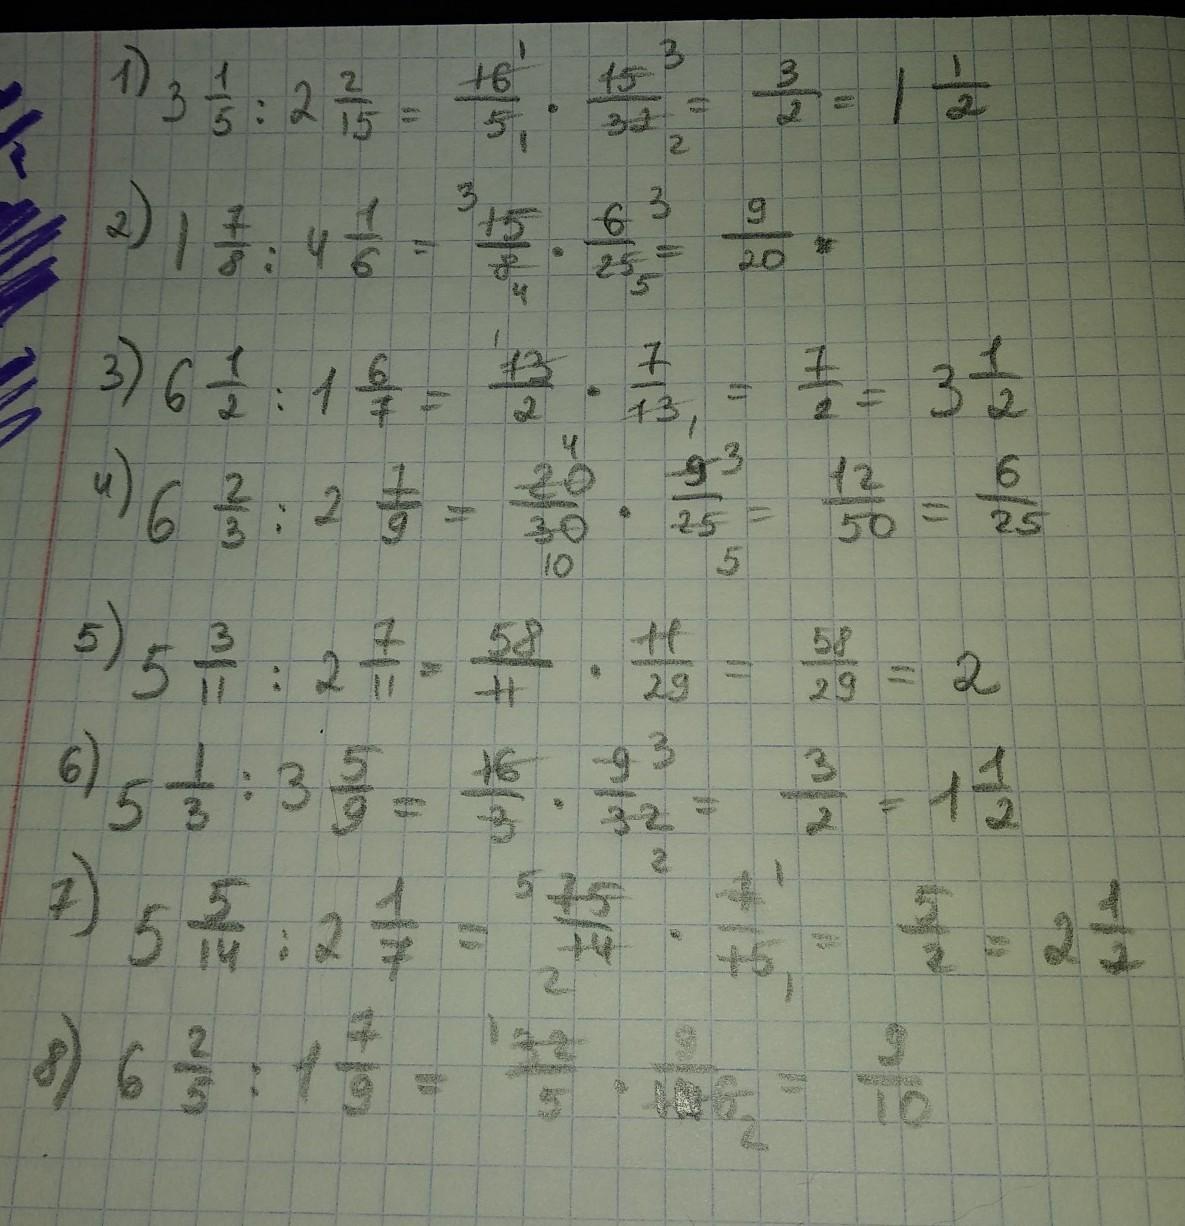 1) 3 1/5 : 2 2/15 = 16/5 · 15/32 = 3/2 = 1 1/2
2) 1 7/8 : 4 1/6 = 15/8 · 6/25 = 9/20 .
3) 6 1/2 : 1 6/7 = 13/2 · 7/13 = 7/2 = 3 1/2
4) 6 2/3 : 2 7/9 = 20/30 · 9/25 = 12/50 = 6/25
5) 5 3/11 : 2 7/11 = 58/11 · 11/29 = 58/29 = 2
6) 5 1/3 : 3 5/9 = 16/3 · 9/32 = 3/2 = 1 1/2
7) 5 5/14 : 2 1/7 = 75/14 · 7/15 = 5/2 = 2 1/2
8) 6 2/5 : 1 7/9 = 32/5 · 9/16 = 9/10